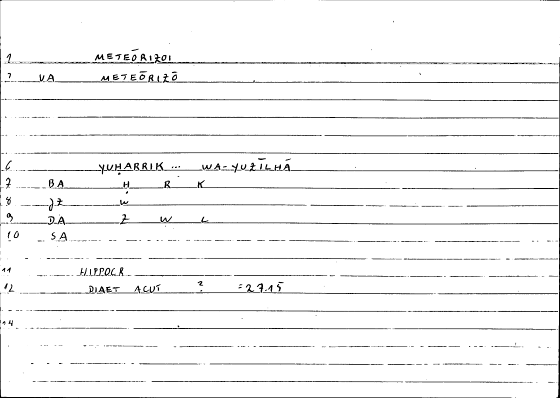 1 METEŌRIZOI
2 VA METEŌRIZŌ
6 YUḤARRIK ... WA-YUZĪLHĀ
7 BA Ḥ R K
8 JZ W
9 DA Z W L
10 SA
11 HIPPOCR
12 DIAET ACUT ? =27.15
14